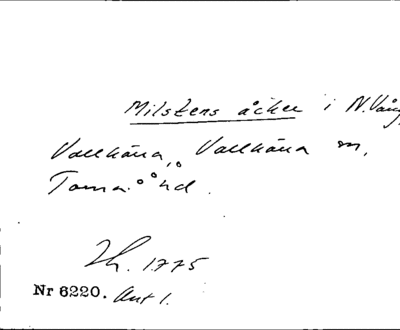 Milstens åcker i N. Vång
Vallkärra, Vallkärra sn,
Torna hd.
Sk. 1775
Nr 6220. Avt 1.